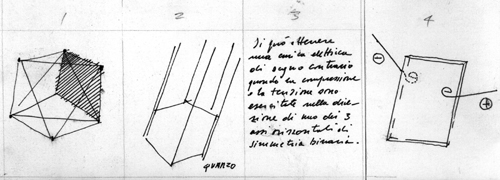 1
2
3
4
Si può ottenere
una carica elettrica
di segno contrario
quando la compressione
o la tensione sono
esercitate nella dire-
zione di uno dei 3
assi orizzontali di
simmetria binaria.
QUARZO
-
+